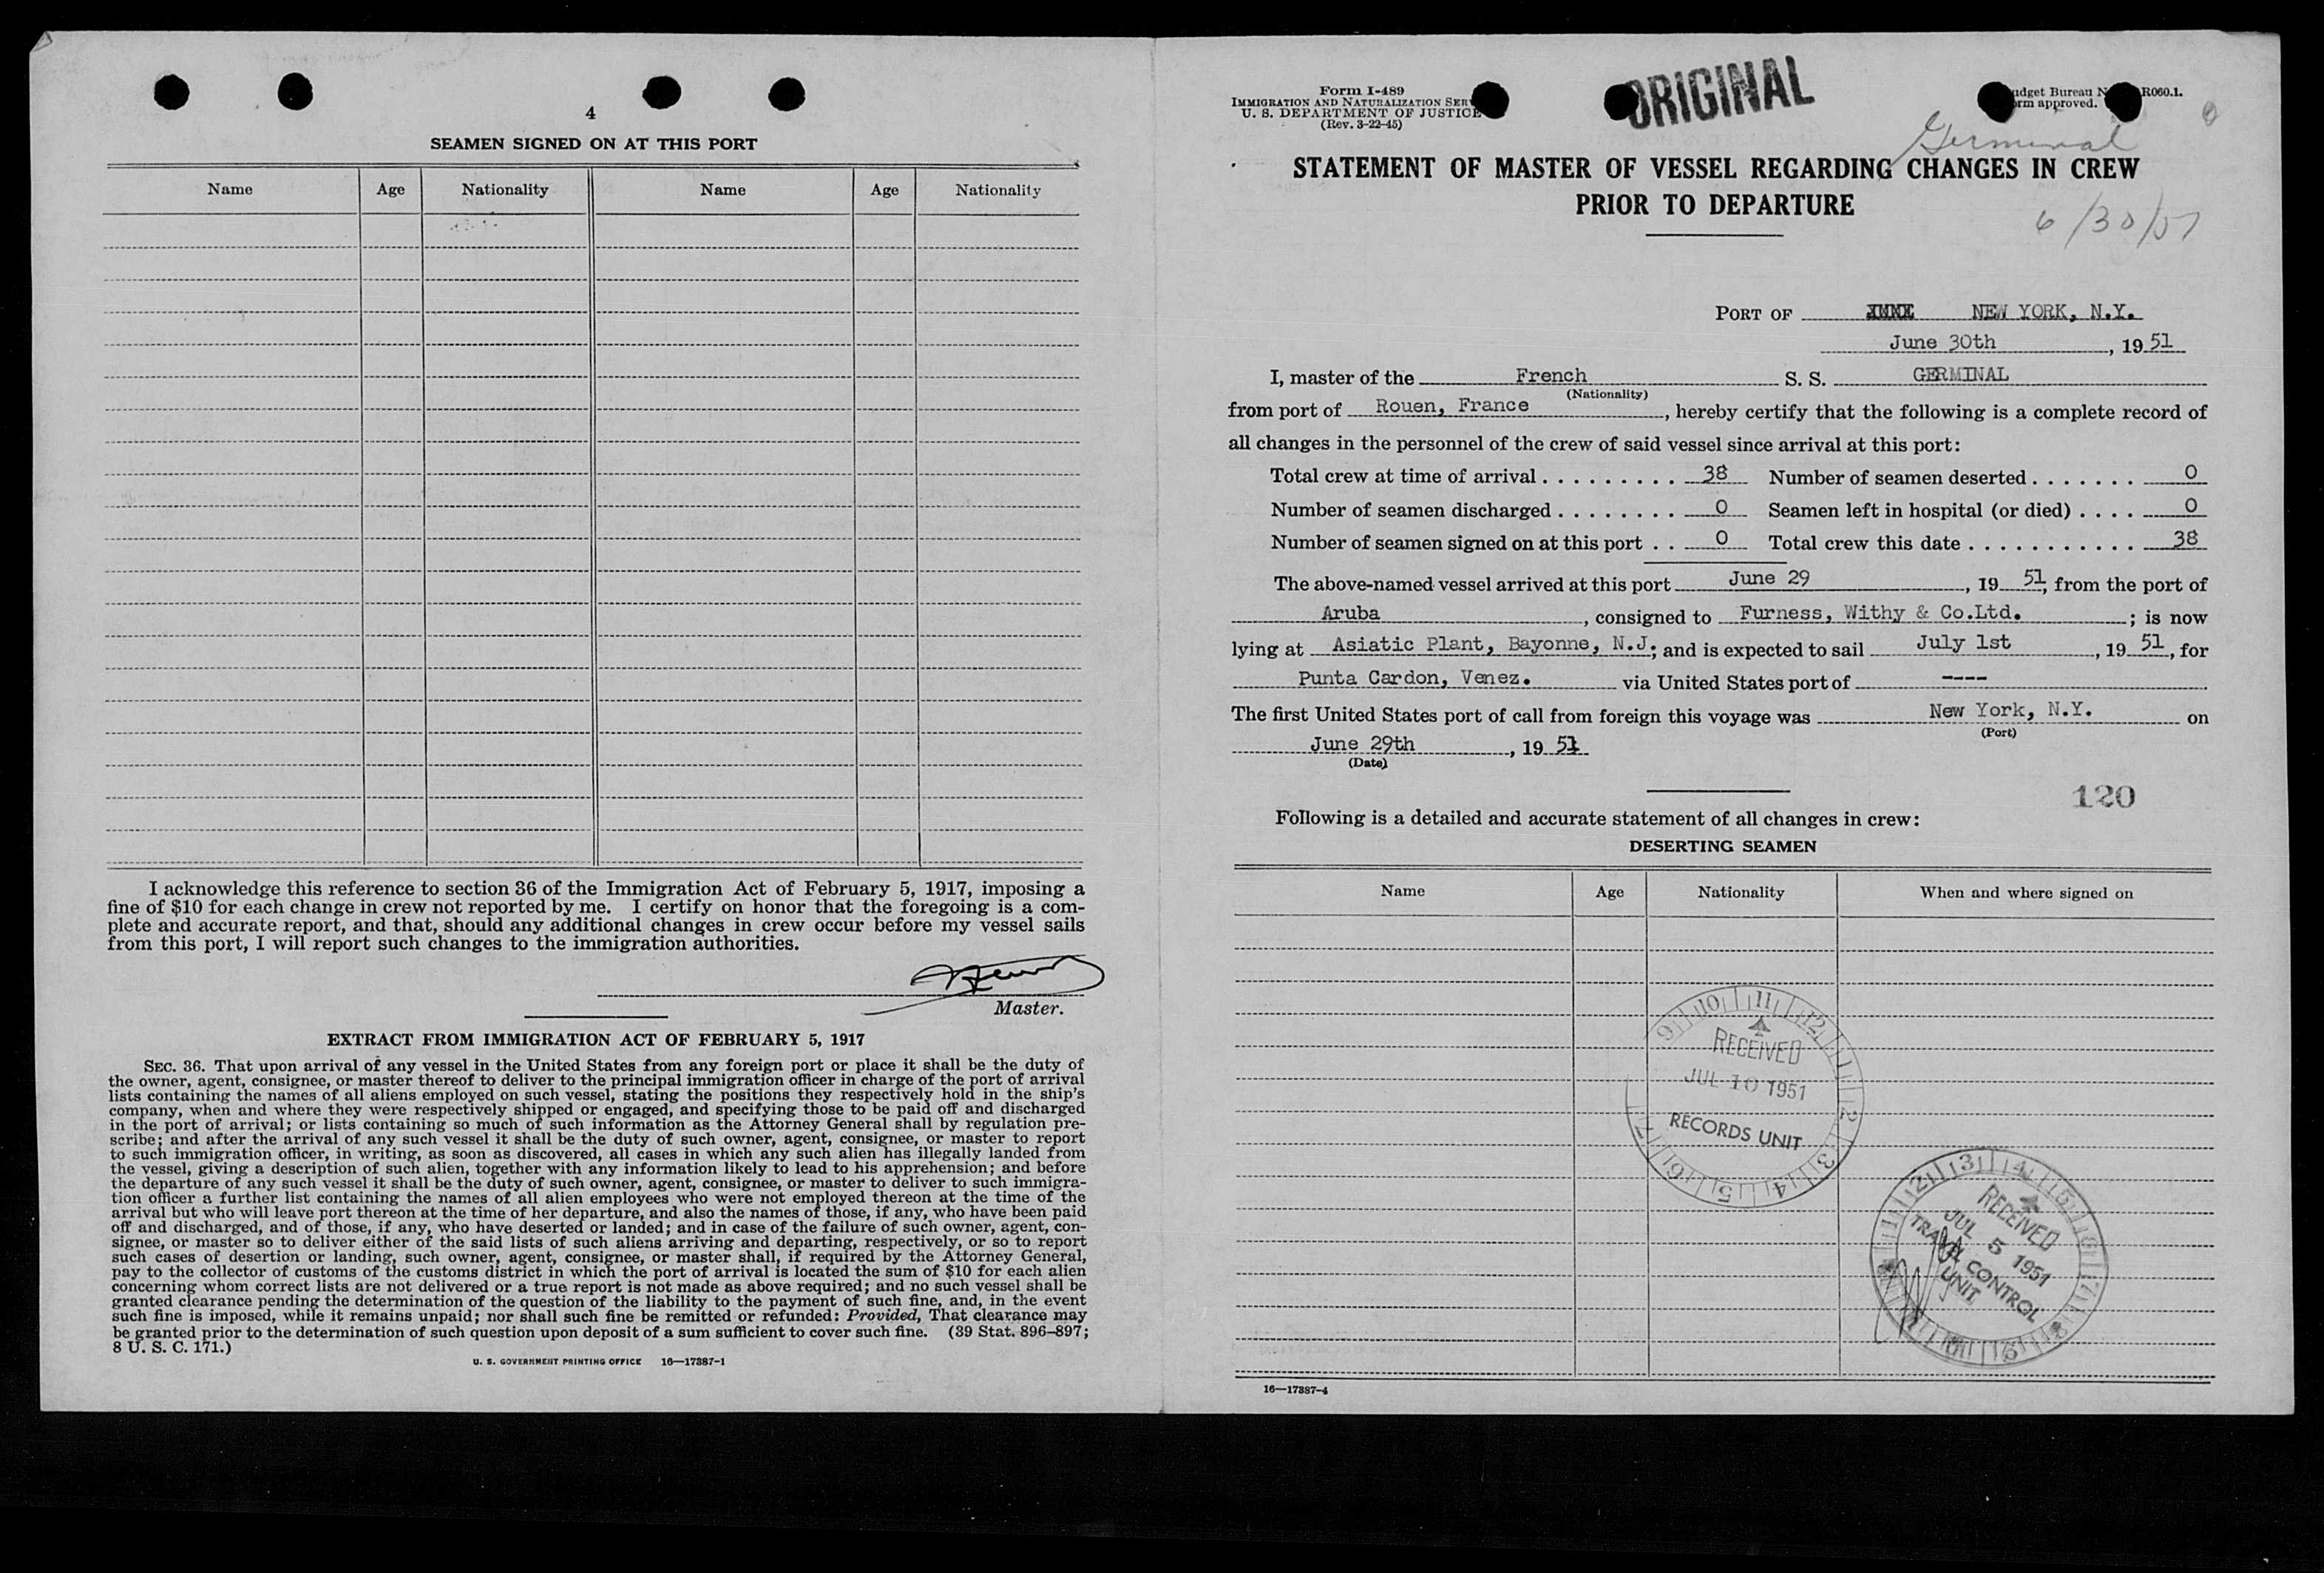 4
SEAMEN SIGNED ON AT THIS PORT
Name Age Nationality Name Age Nationality
I acknowledge this reference to section 36 of the Immigration Act of February 5, 1917, imposing a
fine of $10 for each change in crew not reported by me. I certify on honor that the foregoing is a com-
plete and accurate report, and that, should any additional changes in crew occur before my vessel sails
from this port, I will report such changes to the immigration authorities.
Master.
EXTRACT FROM IMMIGRATION ACT OF FEBRUARY 5, 1917
SEC. 36. That upon arrival of any vessel in the United States from any foreign port or place it shall be the duty of
the owner, agent, consignee, or master thereof to deliver to the principal immigration officer in charge of the port of arrival
lists containing the names of all aliens employed on such vessel, stating the positions they respectively hold in the ship's
company, when and where they were respectively shipped or engaged, and specifying those to be paid off and discharged
in the port of arrival; or lists containing so much of such information as the Attorney General shall by regulation pre-
scribe; and after the arrival of any such vessel it shall be the duty of such owner, agent, consignee, or master to report
to such immigration officer, in writing, as soon as discovered, all cases in which any such alien has illegally landed from
the vessel, giving a description of such alien, together with any information likely to lead to his apprehension; and before
the departure of any such vessel it shall be the duty of such owner, agent, consignee, or master to deliver to such immigra-
tion officer a further list containing the names of all alien employees who were not employed thereon at the time of the
arrival but who will leave port thereon at the time of her departure, and also the names of those, if any, who have been paid
off and discharged, and of those, if any, who have deserted or landed; and in case of the failure of such owner, agent, con-
signee, or master so to deliver either of the said lists of such aliens arriving and departing, respectively, or so to report
such cases of desertion or landing, such owner, agent, consignee, or master shall, if required by the Attorney General,
pay to the collector of customs of the customs district in which the port of arrival is located the sum of $10 for each alien
concerning whom correct lists are not delivered or a true report is not made as above required; and no such vessel shall be
granted clearance pending the determination of the question of the liability to the payment of such fine, and, in the event
such fine is imposed, while it remains unpaid; nor shall such fine be remitted or refunded: Provided, That clearance may
be granted prior to the determination of such question upon deposit of a sum sufficient to cover such fine. (39 Stat. 896–897;
8 U. S. C. 171.)
U. S. GOVERNMENT PRINTING OFFICE 16—17387-1
Form I-489
IMMIGRATION AND NATURALIZATION SER
U. S. DEPARTMENT OF JUSTICE
(Rev. 3-22-45)
ORIGINAL
udget Bureau N R060.1.
rm approved.
Germinal
STATEMENT OF MASTER OF VESSEL REGARDING CHANGES IN CREW
PRIOR TO DEPARTURE
6/30/51
PORT OF NEW YORK, N.Y.
June 30th, 1951
I, master of the French S. S. GERMINAL
(Nationality)
from port of Rouen, France, hereby certify that the following is a complete record of
all changes in the personnel of the crew of said vessel since arrival at this port:
Total crew at time of arrival . . . . . . . . . 38 Number of seamen deserted . . . . . . . 0
Number of seamen discharged . . . . . . . . 0 Seamen left in hospital (or died) . . . . 0
Number of seamen signed on at this port . . 0 Total crew this date . . . . . . . . . . . 38
The above-named vessel arrived at this port June 29, 1951, from the port of
Aruba, consigned to Furness, Withy & Co.Ltd.; is now
lying at Asiatic Plant, Bayonne, N.J.; and is expected to sail July 1st, 1951, for
Punta Cardon, Venez. via United States port of ----
The first United States port of call from foreign this voyage was New York, N.Y. on
(Port)
June 29th, 1951
(Date)
120
Following is a detailed and accurate statement of all changes in crew:
DESERTING SEAMEN
Name Age Nationality When and where signed on
9 10 11 12 1 2 3 4 5 6 7
RECEIVED
JUL 10 1951
RECORDS UNIT
1 2 3 4 5 6 7 8 9
RECEIVED
JUL 5 1951
TRAVEL CONTROL
UNIT
16—17387-4